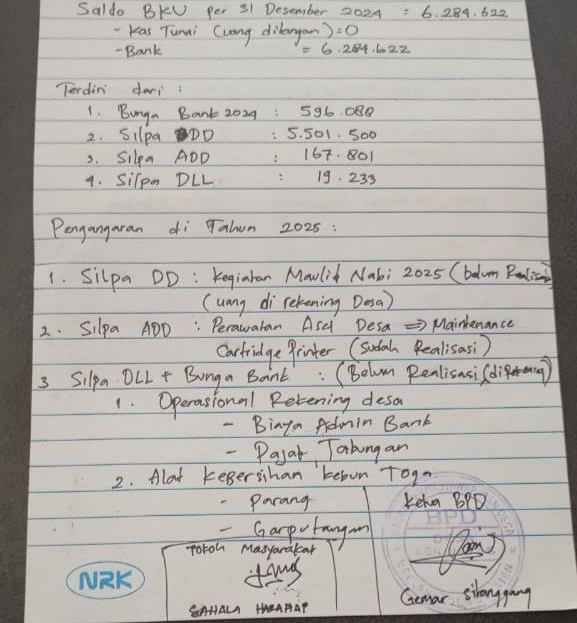 Saldo BKU per 31 Desember 2024 : 6.284.622
- Kas Tunai (uang ditangan) = 0
- Bank = 6.284.622
Terdiri dari :
1. Bunga Bank 2024 : 596.088
2. Silpa DD : 5.501.500
3. Silpa ADD : 167.801
4. Silpa DLL : 19.233
Pengangaran di Tahun 2025 :
1. Silpa DD : Kegiatan Maulid Nabi 2025 (belum Realisasi)
(uang di rekening Desa)
2. Silpa ADD : Perawatan Aset Desa => Maintenance
Cartridge Printer (Sudah Realisasi)
3 Silpa DLL + Bunga Bank : (Belum Realisasi (di Rekening)
1. Operasional Rekening desa
- Biaya Admin Bank
- Pajak Tabungan
2. Alat kebersihan kebun Toga
- Parang
- Garputangan
Ketua BPD
BPD
Tokoh Masyarakat
NRK
SAHALA HARAHAP
Gemar Sitanggang